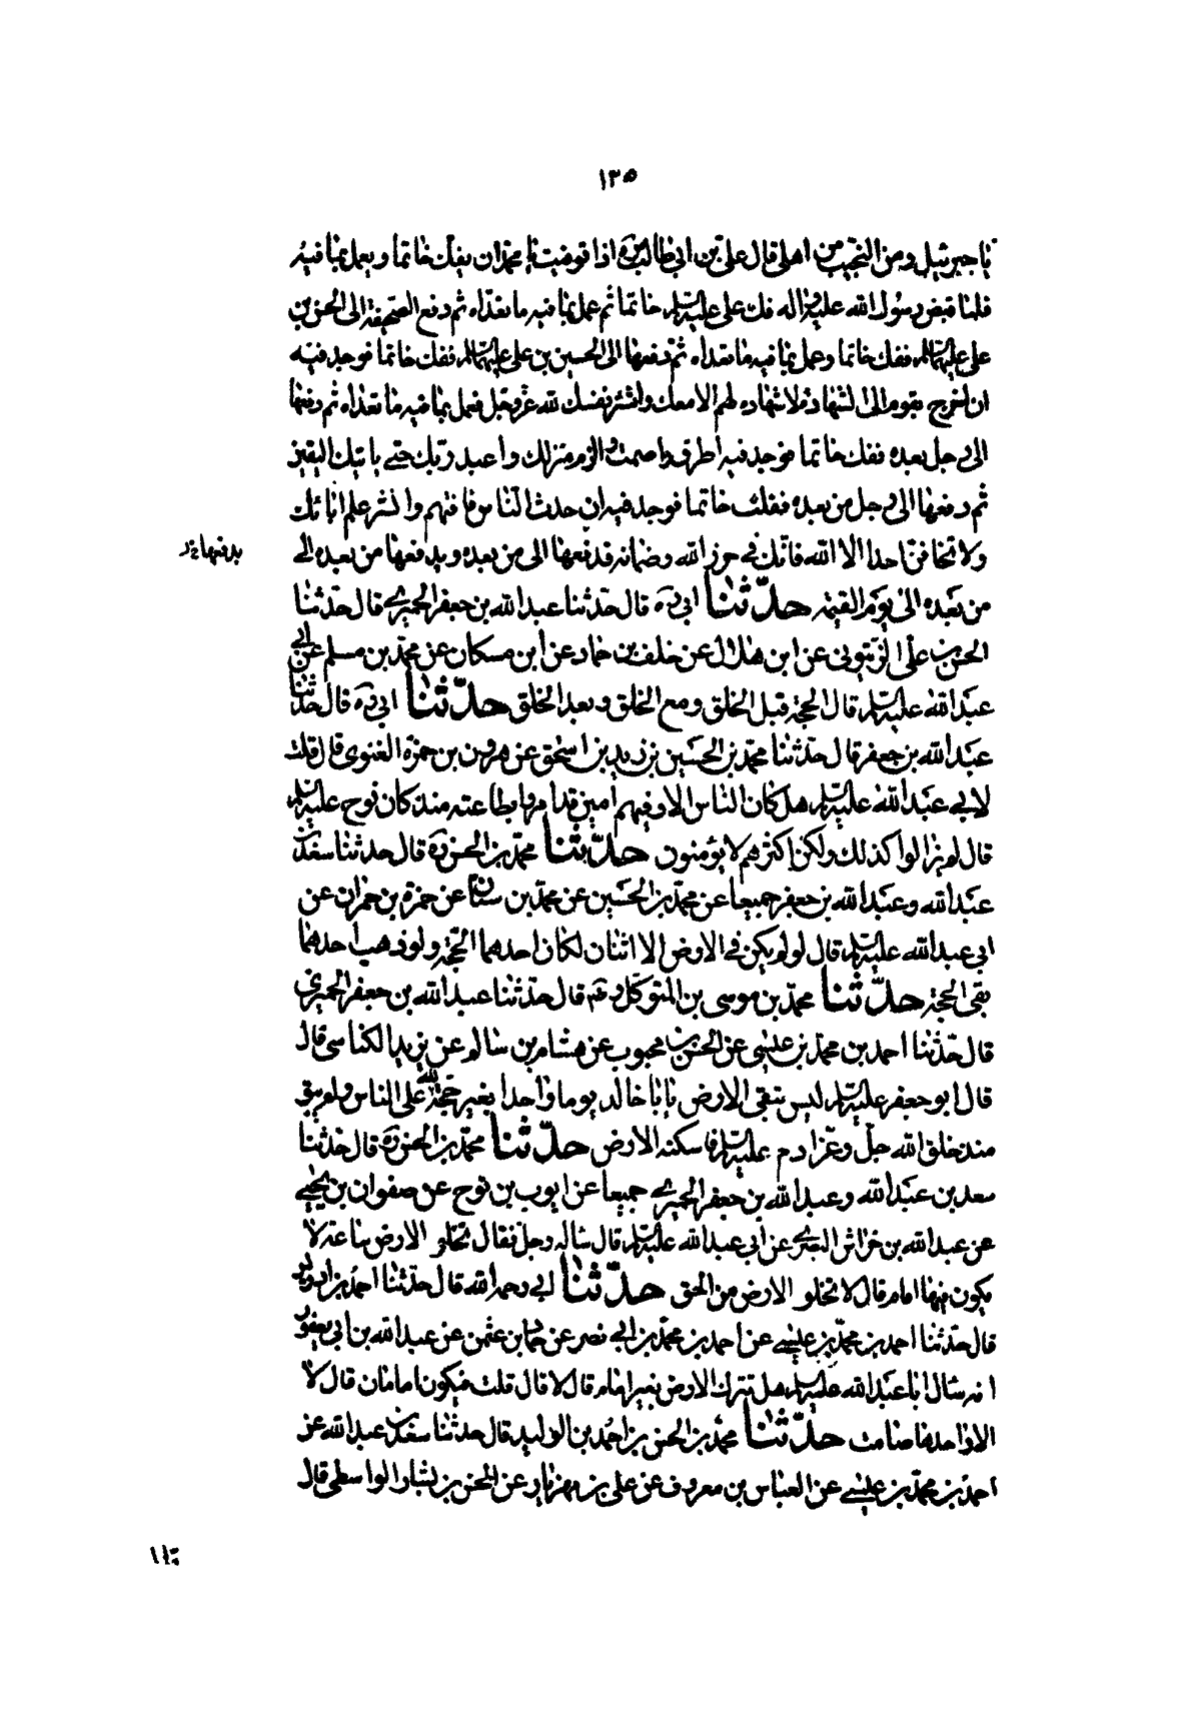 ١٣٥
يا جبرئيل ومن النجيب من اهلي قال علي بن ابي طالب مره اذا توفيت يا محمد ان يفك خاتما ويعمل بما فيه
فلما قبض رسول الله عليه واله فك علي عليه السلم خاتما ثم عمل بما فيه ما تعداه ثم دفع الصحيفة الى الحسن بن
علي عليهما السلم ففك خاتما وعمل بما فيه ما تعداه ثم دفعها الى الحسين بن علي عليهما السلم ففك خاتما فوجد فيه
ان اخرج بقوم الى الشهادة لا شهاده لهم الا معك واشتر نفسك لله عز وجل فعمل بما فيه ما تعداه ثم دفعها
الى رجل بعده ففك خاتما فوجد فيه اطرق واصمت والزم منزلك واعبد ربك حتى ياتيك اليقين
ثم دفعها الى رجل من بعده ففك خاتما فوجد فيه ان حدث الناس وافتهم وانشر علم ابائك
ولا تخافن احدا الا الله فانك في حرز الله وضمانه فدفعها الى من بعده ويدفعها من بعده الى
يدفعها خ
من بعده الى يوم القيمه حدّثنا ابي ره قال حدّثنا عبد الله بن جعفر الحميري قال حدّثنا
الحسن بن علي الزيتوني عن ابن هلال عن خلف بن حماد عن ابن مسكان عن محمد بن مسلم عن ابي
عبد الله عليه السلم قال الحجة قبل الخلق ومع الخلق وبعد الخلق حدّثنا ابي ره قال حدّثنا
عبد الله بن جعفر قال حدّثنا محمد بن الحسين بن زيد بن اسحق عن هرون بن حمزة الغنوي قال قلت
لابي عبد الله عليه السلم هل كان الناس الا وفيهم امين قد امروا بطاعته منذ كان نوح عليه السلم
قال لم يزالوا كذلك ولكن اكثرهم لا يؤمنون حدّثنا محمد بن الحسن ره قال حدثنا سعد بن
عبد الله وعبد الله بن جعفر جميعا عن محمد بن الحسين عن محمد بن سنان عن حمزة بن حمران عن
ابي عبد الله عليه السلم قال لو لم يكن في الارض الا اثنان لكان احدهما الحجة ولو ذهب احدهما
بقي الحجة حدّثنا محمد بن موسى بن المتوكل ره قال حدّثنا عبد الله بن جعفر الحميري
قال حدّثنا احمد بن محمد بن عيسى عن الحسن بن محبوب عن هشام بن سالم عن يزيد الكناسي قال
قال ابو جعفر عليه السلم ليس تبقى الارض يا با خالد يوما واحدا بغير حجة لله على الناس ولم يبق
منذ خلق الله جل وعز ادم عليه السلم فاسكنه الارض حدّثنا محمد بن الحسن ره قال حدّثنا
سعد بن عبد الله وعبد الله بن جعفر الحميري جميعا عن ايوب بن نوح عن صفوان بن يحيى
عن عبد الله بن خراش البصري عن ابي عبد الله عليه السلم قال ساله رجل فقال تخلو الارض ساعة لا
يكون فيها امام قال لا تخلو الارض من الحق حدّثنا ابي رحمه الله قال حدّثنا احمد بن ادريس
قال حدّثنا احمد بن محمد بن عيسى عن احمد بن محمد بن ابي نصر عن حماد بن عثمن عن عبد الله بن ابي يعفور
انه سال ابا عبد الله عليه السلم هل تترك الارض بغير امام قال لا قال قلت فيكون امامان قال لا
الا واحدهما صامت حدّثنا محمد بن الحسن بن احمد بن الوليد قال حدثنا سعد بن عبد الله عن
احمد بن محمد بن عيسى عن العباس بن معروف عن علي بن مهزيار عن الحسن بن بشار الواسطي قال